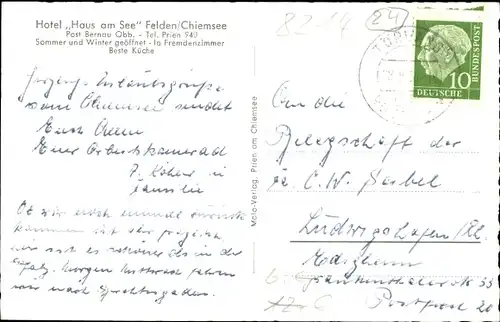 Hotel „Haus am See" Felden/Chiemsee
Post Bernau Obb. - Tel. Prien 940
Sommer und Winter geöffnet - la Fremdenzimmer
Beste Küche
8214
24
DEUTSCHE
BUNDESPOST
10
Urlaubsgrüße
vom Chiemsee sendet
Euch Allen
Euer Arbeitskamerad
F. Köhler u
Familie
Ob wir noch einmal zurück
kommen ist
ist es schöner als in der
Pfalz. Morgen Mittwoch fahren
wir nach Berchtesgaden.
Moto-Verlag, Prien am Chiemsee
An die
Belegschaft der
Fa. C. W.
Ludwigshafen/Rh.
Frankenthalerstr 33
Postfach 20